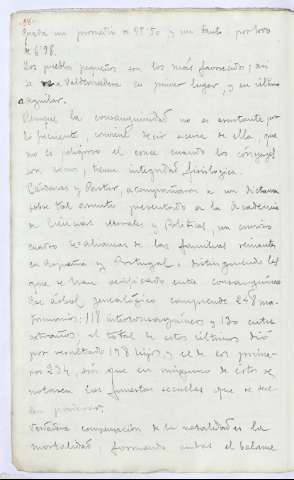 queda un promedio de 9º50 y un tanto por 1000
de 6'98.
Los pueblos pequeños son los más favorecidos; así
se a Valdemadera en primer lugar, y en último
a Aguilar.
Aunque la consanguinidad no es
lo frecuente, conviene decir acerca de ella, que
no es peligroso el cruce cuando los cónyuges
son sanos, tienen integridad fisiológica.
Cárdenas y Pastor, acompañaron a un dictamen
sobre tal asunto presentado en la Academia
de Ciencias Morales y Políticas, un curioso
cuadro de alianzas de las familias reinantes
en España y Portugal, distinguiendo las
que se han verificado entre consanguíneos
Ese árbol genealógico comprende 248 ma-
trimonios: 118 interconsanguíneos y 130 entre
extraños; el total de estos últimos dió
por resultado 198 hijos y el de los prime-
ros 234, sin que en ninguno de éstos se
notasen las funestas secuelas que se
len
Verdadera compensación de la natalidad es la
mortalidad, formando ambas el balance